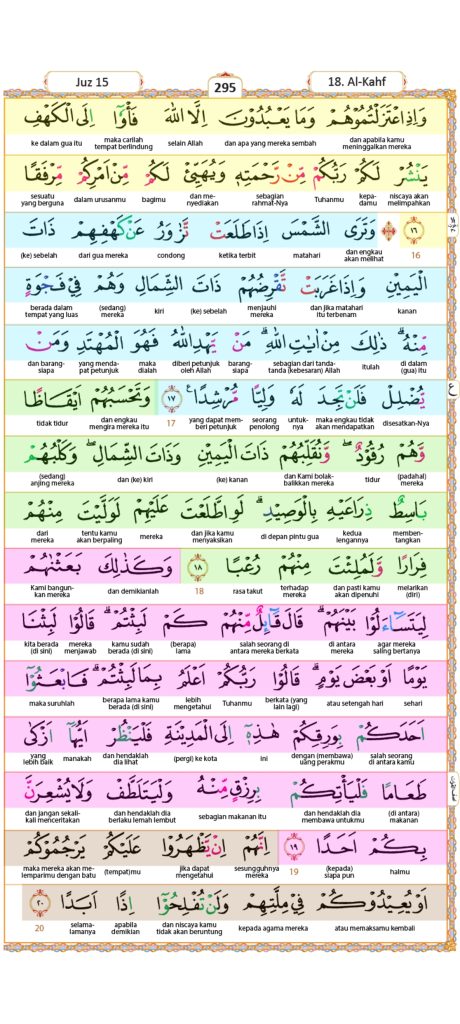 Juz 15
295
18. Al-Kahf
وَاِذِاعْتَزَلْتُمُوْهُمْ وَمَا يَعْبُدُوْنَ اِلَّا اللّٰهَ فَأْوٗٓا اِلَى الْكَهْفِ
dan apabila kamu meninggalkan mereka
dan apa yang mereka sembah
selain Allah
maka carilah tempat berlindung
ke dalam gua itu
يَنْشُرْ لَكُمْ رَبُّكُمْ مِّنْ رَّحْمَتِهٖ وَيُهَيِّئْ لَكُمْ مِّنْ اَمْرِكُمْ مِّرْفَقًا
niscaya akan melimpahkan
kepadamu
Tuhanmu
sebagian rahmat-Nya
dan menyediakan
bagimu
dalam urusanmu
sesuatu yang berguna
١٦ وَتَرَى الشَّمْسَ اِذَا طَلَعَتْ تَّزٰوَرُ عَنْ كَهْفِهِمْ ذَاتَ
16
dan engkau akan melihat
matahari
ketika terbit
condong
dari gua mereka
(ke) sebelah
الْيَمِيْنِ وَاِذَا غَرَبَتْ تَّقْرِضُهُمْ ذَاتَ الشِّمَالِ وَهُمْ فِيْ فَجْوَةٍ
kanan
dan jika matahari itu terbenam
menjauhi mereka
(ke) sebelah
kiri
(sedang) mereka
berada dalam tempat yang luas
مِّنْهُ ۗ ذٰلِكَ مِنْ اٰيٰتِ اللّٰهِ ۗ مَنْ يَّهْدِ اللّٰهُ فَهُوَ الْمُهْتَدِ وَمَنْ
di dalam (gua) itu
itulah
sebagian dari tanda-tanda (kebesaran) Allah
barangsiapa
diberi petunjuk oleh Allah
maka dialah
yang mendapat petunjuk
dan barangsiapa
يُّضْلِلْ فَلَنْ تَجِدَ لَهٗ وَلِيًّا مُّرْشِدًا ۗ ١٧ وَتَحْسَبُهُمْ اَيْقَاظًا
disesatkan-Nya
maka engkau tidak akan mendapatkan
untuknya
seorang penolong
yang dapat memberi petunjuk
17
dan engkau mengira mereka itu
tidak tidur
وَّهُمْ رُقُوْدٌ ۖ وَّنُقَلِّبُهُمْ ذَاتَ الْيَمِيْنِ وَذَاتَ الشِّمَالِ ۖ وَكَلْبُهُمْ
(padahal) mereka
tidur
dan Kami bolak-balikkan mereka
(ke) kanan
dan (ke) kiri
(sedang) anjing mereka
بَاسِطٌ ذِرَاعَيْهِ بِالْوَصِيْدِ ۗ لَوِ اطَّلَعْتَ عَلَيْهِمْ لَوَلَّيْتَ مِنْهُمْ
membentangkan
kedua lengannya
di depan pintu gua
dan jika kamu menyaksikan
mereka
tentu kamu akan berpaling
dari mereka
فِرَارًا وَّلَمُلِئْتَ مِنْهُمْ رُعْبًا ١٨ وَكَذٰلِكَ بَعَثْنٰهُمْ
melarikan (diri)
dan pasti kamu akan dipenuhi
terhadap mereka
rasa takut
18
dan demikianlah
Kami bangunkan mereka
لِيَتَسَاۤءَلُوْا بَيْنَهُمْ ۗ قَالَ قَاۤئِلٌ مِّنْهُمْ كَمْ لَبِثْتُمْ ۗ قَالُوْا لَبِثْنَا
agar mereka saling bertanya
di antara mereka
salah seorang di antara mereka berkata
(berapa) lama
kamu sudah berada (di sini)
mereka menjawab
kita berada (di sini)
يَوْمًا اَوْ بَعْضَ يَوْمٍ ۗ قَالُوْا رَبُّكُمْ اَعْلَمُ بِمَا لَبِثْتُمْ ۗ فَابْعَثُوْٓا
sehari
atau setengah hari
berkata (yang lain lagi)
Tuhanmu
lebih mengetahui
berapa lama kamu berada (di sini)
maka suruhlah
اَحَدَكُمْ بِوَرِقِكُمْ هٰذِهٖٓ اِلَى الْمَدِيْنَةِ فَلْيَنْظُرْ اَيُّهَآ اَزْكٰى
salah seorang di antara kamu
dengan (membawa) uang perakmu
ini
(pergi) ke kota
dan hendaklah dia lihat
manakah
yang lebih baik
طَعَامًا فَلْيَأْتِكُمْ بِرِزْقٍ مِّنْهُ وَلْيَتَلَطَّفْ وَلَا يُشْعِرَنَّ
(di antara) makanan
dan hendaklah dia membawa untukmu
sebagian makanan itu
dan hendaklah dia berlaku lemah lembut
dan jangan sekali-kali menceritakan
بِكُمْ اَحَدًا ١٩ اِنَّهُمْ اِنْ يَّظْهَرُوْا عَلَيْكُمْ يَرْجُمُوْكُمْ
halmu
(kepada) siapa pun
19
sesungguhnya mereka
jika dapat mengetahui
(tempat)mu
maka mereka akan melemparimu dengan batu
اَوْ يُعِيْدُوْكُمْ فِيْ مِلَّتِهِمْ وَلَنْ تُفْلِحُوْٓا اِذًا اَبَدًا ٢٠
atau memaksamu kembali
kepada agama mereka
dan niscaya kamu tidak akan beruntung
apabila demikian
selama-lamanya
20
ع